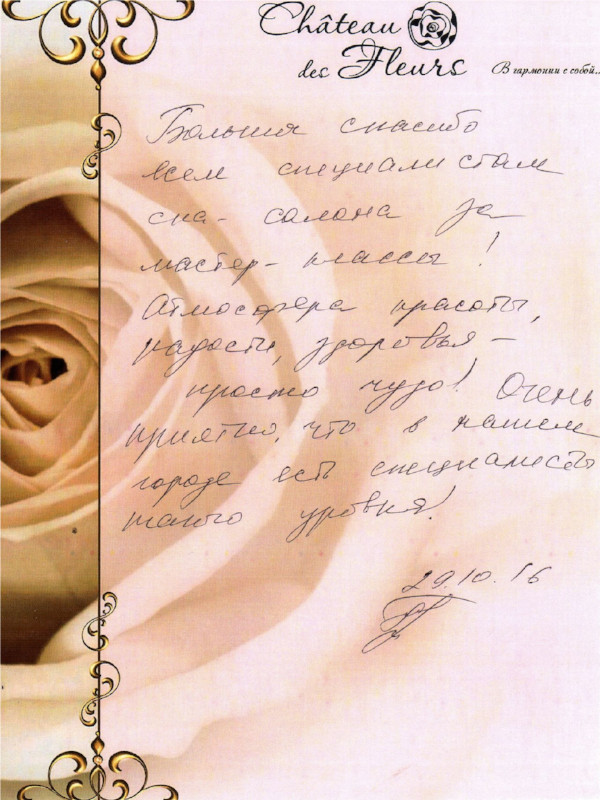 Château
des Fleurs
В гармонии с собой...
Большия спасибо
всем специалистам
спа- салона за
мастер- классы !
Атмосфера красоты,
радости, здоровья -
просто чудо! Очень
приятно, что в нашем
городе есть специалисты
такого уровня!
29.10.16